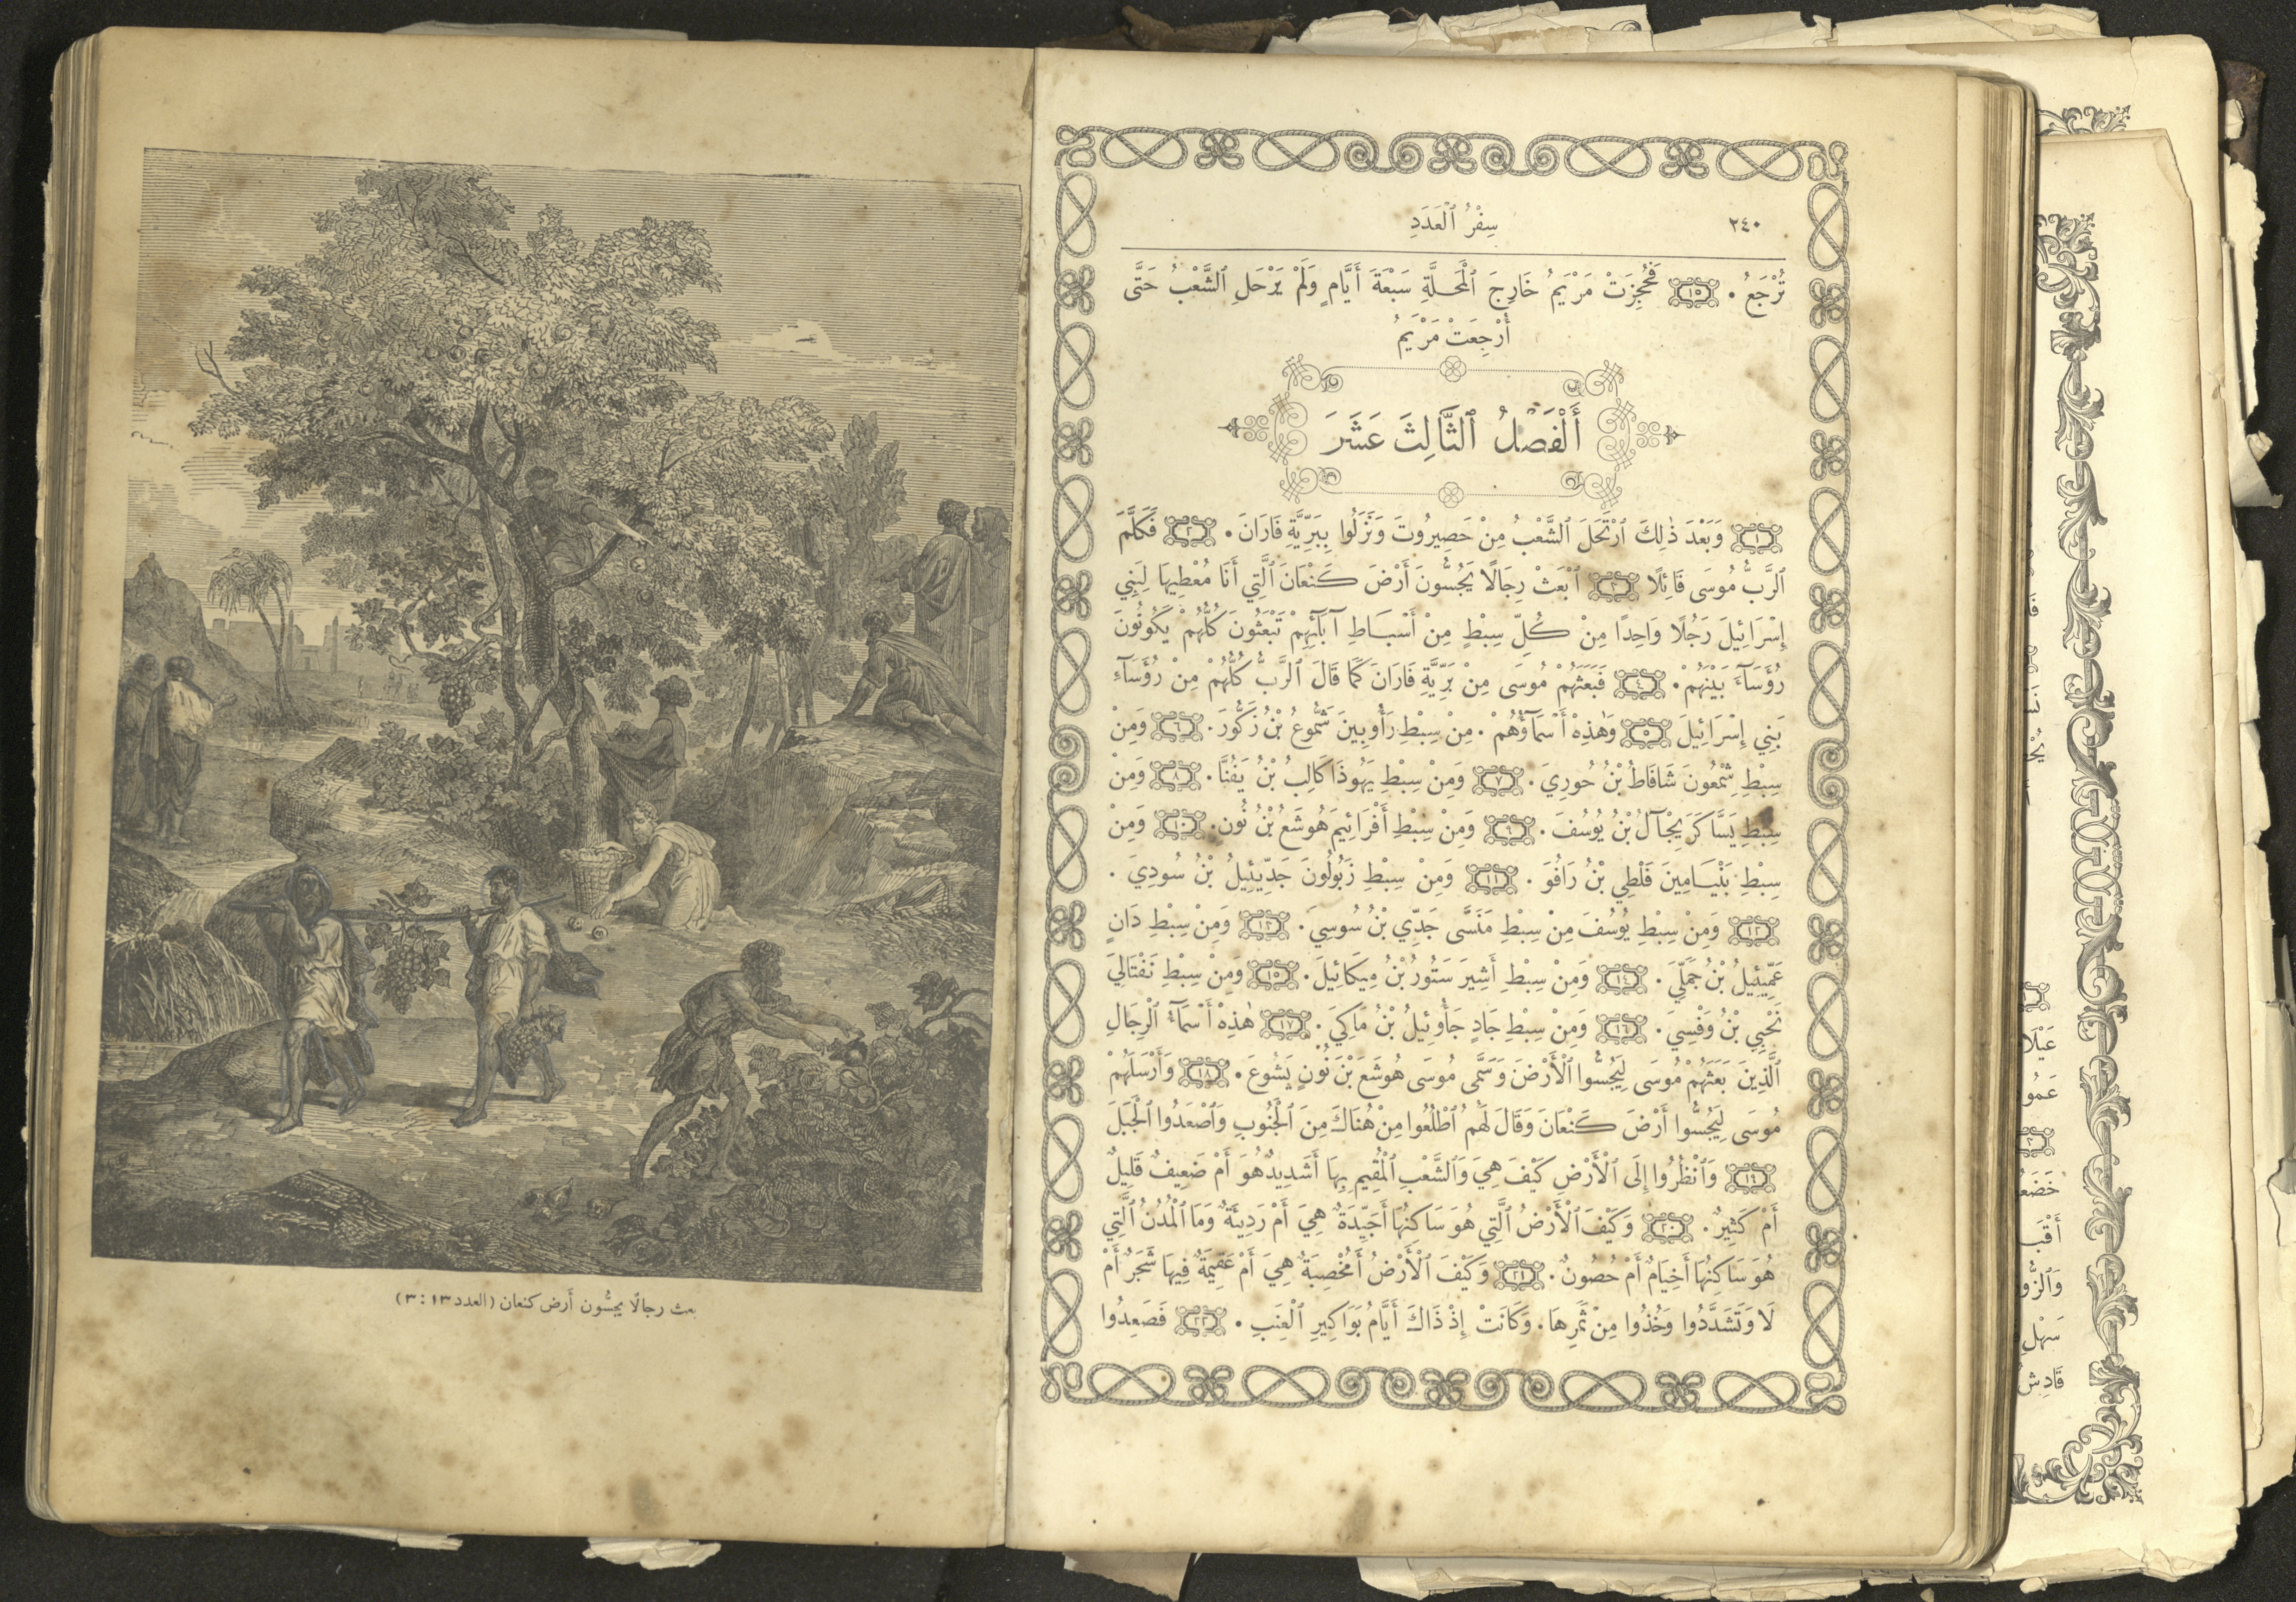 ٢٤٠
سِفْرُ ٱلْعَدَدِ
تُرْجَعُ . ١٥ فَحُجِزَتْ مَرْيَمُ خَارِجَ ٱلْمَحَلَّةِ سَبْعَةَ أَيَّامٍ وَلَمْ يَرْحَلِ ٱلشَّعْبُ حَتَّى
أُرْجِعَتْ مَرْيَمُ
أَلْفَصْلُ ٱلثَّالِثَ عَشَرَ
١ وَبَعْدَ ذٰلِكَ ٱرْتَحَلَ ٱلشَّعْبُ مِنْ حَصِيرُوتَ وَنَزَلُوا بِبَرِّيَّةِ فَارَانَ . ٢ فَكَلَّمَ
ٱلرَّبُّ مُوسَى قَائِلًا ٣ ٱبْعَثْ رِجَالًا يَجُسُّونَ أَرْضَ كَنْعَانَ ٱلَّتِي أَنَا مُعْطِيهَا لِبَنِي
إِسْرَائِيلَ رَجُلًا وَاحِدًا مِنْ كُلِّ سِبْطٍ مِنْ أَسْبَاطِ آبَآئِهِمْ تَبْعَثُونَ كُلُّهُمْ يَكُونُونَ
رُؤَسَآءَ بَيْنَهُمْ . ٤ فَبَعَثَهُمْ مُوسَى مِنْ بَرِّيَّةِ فَارَانَ كَمَا قَالَ ٱلرَّبُّ كُلُّهُمْ مِنْ رُؤَسَآءِ
بَنِي إِسْرَائِيلَ ٥ وَهٰذِهْ أَسْمَآؤُهُمْ . مِنْ سِبْطِ رَأُوبِينَ شَمُّوعُ بْنُ زَكُّورَ . ٦ وَمِنْ
سِبْطِ شِمْعُونَ شَافَاطُ بْنُ حُورِيَ . ٧ وَمِنْ سِبْطِ يَهُوذَا كَالِبُ بْنُ يَفُنَّا . ٨ وَمِنْ
سِبْطِ يَسَّاكَرَ يِجْآلُ بْنُ يُوسُفَ . ٩ وَمِنْ سِبْطِ أَفْرَائِيمَ هُوشَعُ بْنُ نُونٍ . ١٠ وَمِنْ
سِبْطِ بَنْيَامِينَ فَلْطِي بْنُ رَافُوَ . ١١ وَمِنْ سِبْطِ زَبُولُونَ جَدِّيئِيلُ بْنُ سُودِيَ .
١٢ وَمِنْ سِبْطِ يُوسُفَ مِنْ سِبْطِ مَنَسَّى جَدِّي بْنُ سُوسِيَ . ١٣ وَمِنْ سِبْطِ دَانٍ
عَمِّيئِيلُ بْنُ جَمَلِّيَ . ١٤ وَمِنْ سِبْطِ أَشِيرَ سَتُورُ بْنُ مِيكَائِيلَ . ١٥ وَمِنْ سِبْطِ نَفْتَالِيَ
نَحْبِي بْنُ وَفْسِيَ . ١٦ وَمِنْ سِبْطِ جَادٍ جَأُوئِيلُ بْنُ مَاكِيَ . ١٧ هٰذِهْ أَسْمَآءُ ٱلرِّجَالِ
ٱلَّذِينَ بَعَثَهُمْ مُوسَى لِيَجُسُّوا ٱلْأَرْضَ وَسَمَّى مُوسَى هُوشَعَ بْنَ نُونٍ يَشُوعَ . ١٨ وَأَرْسَلَهُمْ
مُوسَى لِيَجُسُّوا أَرْضَ كَنْعَانَ وَقَالَ لَهُمُ ٱطْلُعُوا مِنْ هُنَاكَ مِنَ ٱلْجَنُوبِ وَٱصْعَدُوا ٱلْجَبَلَ
١٩ وَٱنْظُرُوا إِلَى ٱلْأَرْضِ كَيْفَ هِيَ وَٱلشَّعْبِ ٱلْمُقِيمِ بِهَا أَشَدِيدٌ هُوَ أَمْ ضَعِيفٌ قَلِيلٌ
أَمْ كَثِيرٌ . ٢٠ وَكَيْفَ ٱلْأَرْضُ ٱلَّتِي هُوَ سَاكِنُهَا أَجَيِّدَةٌ هِيَ أَمْ رَدِيئَةٌ وَمَا ٱلْمُدُنُ ٱلَّتِي
هُوَ سَاكِنُهَا أَخِيَامٌ أَمْ حُصُونٌ . ٢١ وَكَيْفَ ٱلْأَرْضُ أَمُخْصِبَةٌ هِيَ أَمْ عَقِيمَةٌ فِيهَا شَجَرٌ أَمْ
لَا وَتَشَدَّدُوا وَخُذُوا مِنْ ثَمَرِهَا . وَكَانَتْ إِذْ ذَاكَ أَيَّامُ بَوَاكِيرِ ٱلْعِنَبِ . ٢٢ فَصَعِدُوا
بعث رجالًا يجسُّون أرض كنعان (العدد ١٣ : ٣)
عَيْلَا
عَمُو
خَضَعُ
أَقْبَ
وَٱلزُّو
سَهْلِ
قَادِش